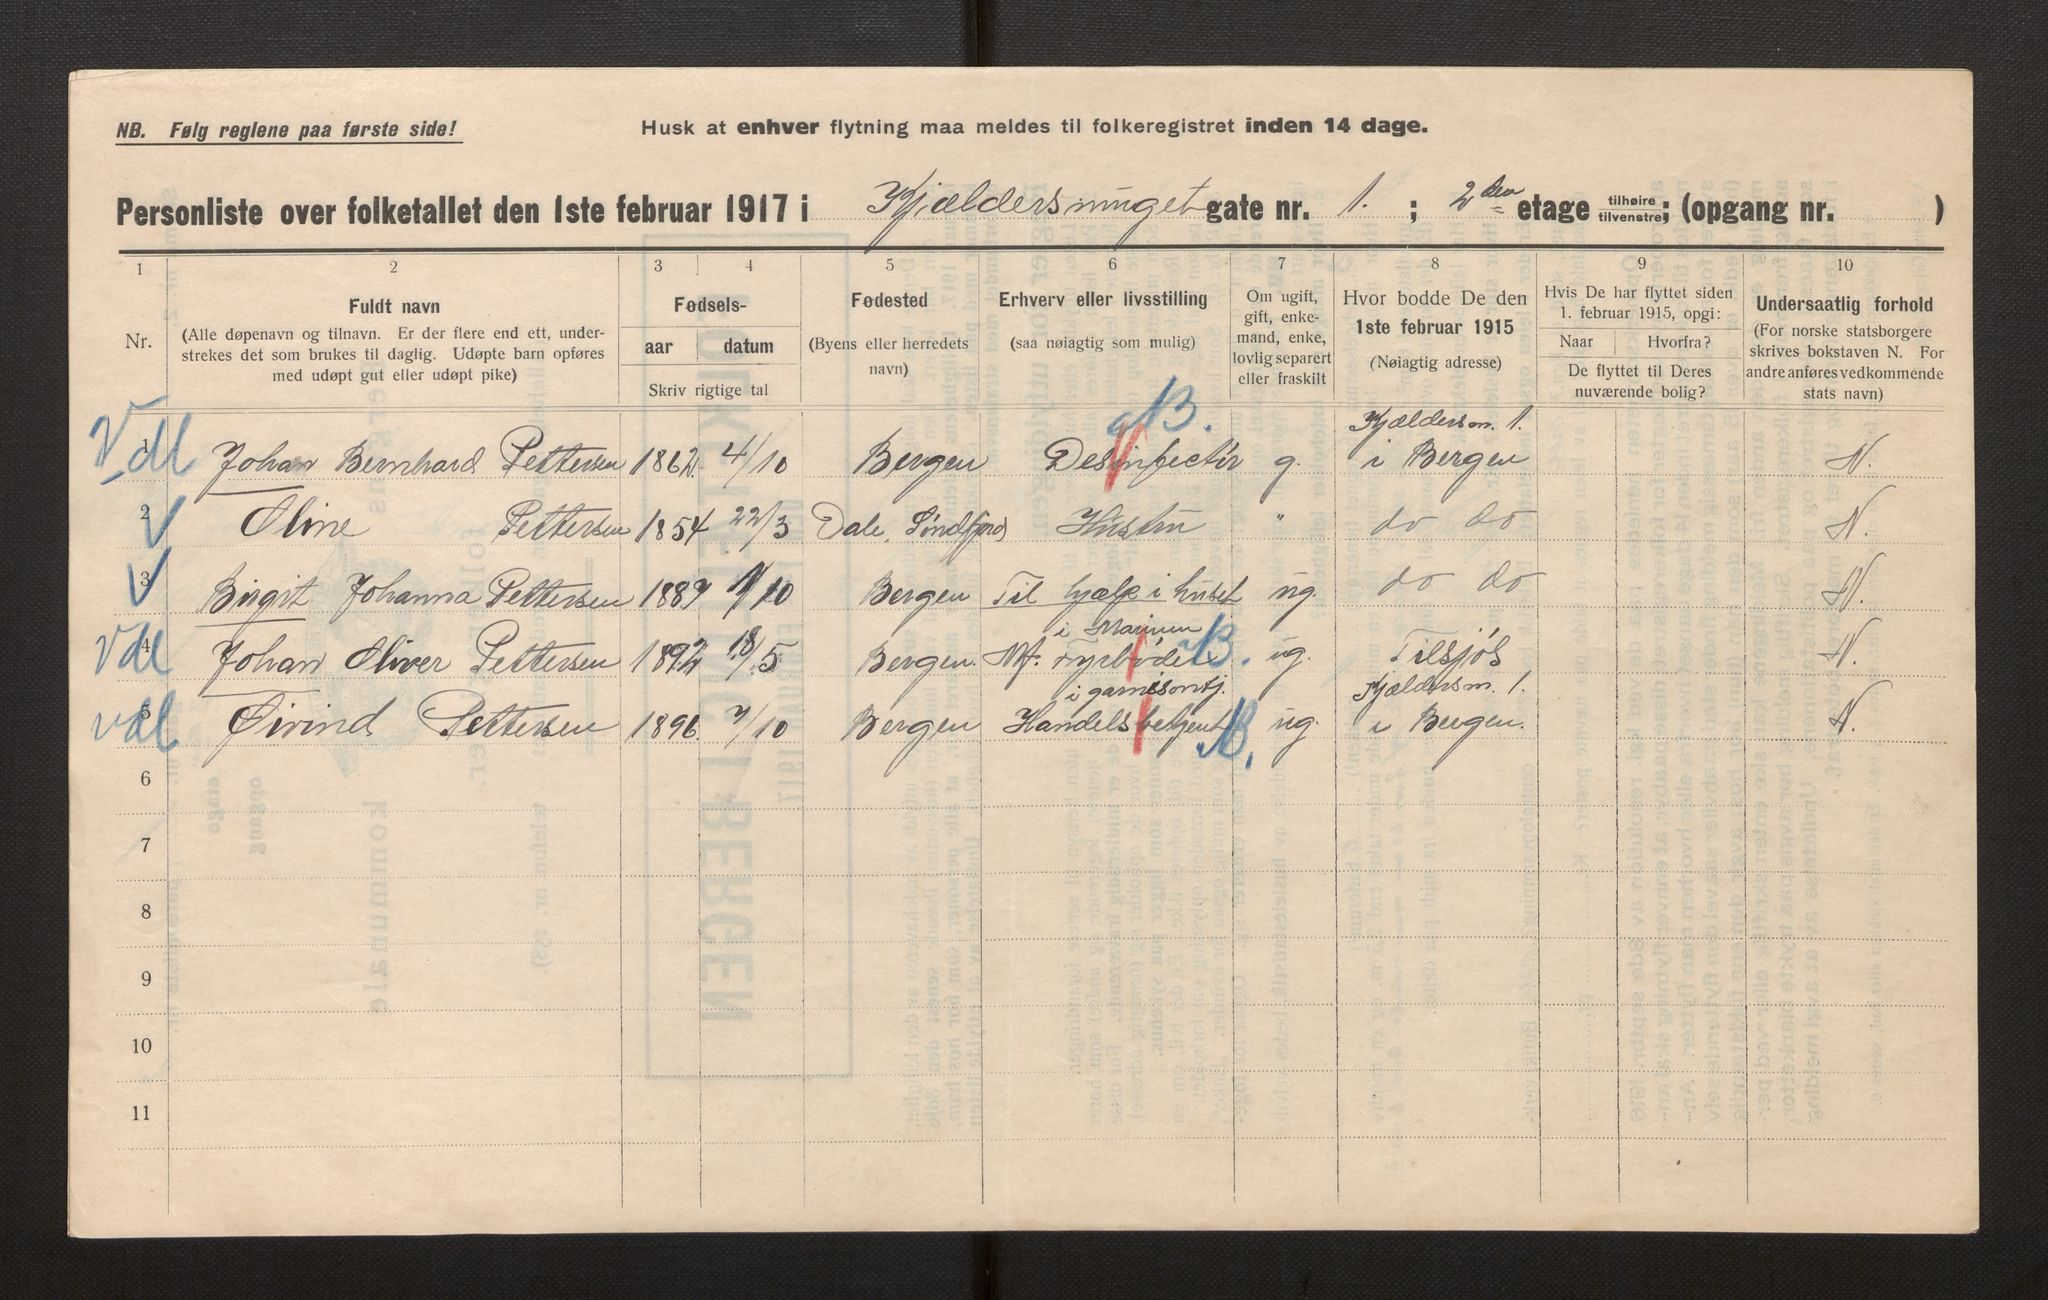 NB. Følg reglene paa første side!
Husk at enhver flytning maa meldes til folkeregistret inden 14 dage.
Personliste over folketallet den 1ste februar 1917 i Kjældersmuget gate nr. 1. ; 2den etage tilhøire tilvenstre; (opgang nr. )
1 2 3 4 5 6 7 8 9 10
Nr.
Fuldt navn
(Alle døpenavn og tilnavn. Er der flere end ett, under-
strekes det som brukes til daglig. Udøpte barn opføres
med udøpt gut eller udøpt pike)
Fødsels-
aar datum
Skriv rigtige tal
Fødested
(Byens eller herredets
navn)
Erhverv eller livsstilling
(saa nøiagtig som mulig)
Om ugift,
gift, enke-
mand, enke,
lovlig separert
eller fraskilt
Hvor bodde De den
1ste februar 1915
(Nøiagtig adresse)
Hvis De har flyttet siden
1. februar 1915, opgi:
Naar Hvorfra?
De flyttet til Deres
nuværende bolig?
Undersaatlig forhold
(For norske statsborgere
skrives bokstaven N. For
andre anføres vedkommende
stats navn)
B. Kjældersm. 1.
Vdl 1 Johan Bernhard Pettersen 1862. 4/10 Bergen Desinfectør g. i Bergen N.
V 2 Oline Pettersen 1854 22/3 Dale, Søndfjord Hustru " do do N.
V 3 Birgit Johanna Pettersen 1889 11/10 Bergen Til hjælp i huset ug. do do N.
i Marinen B.
Vdl 4 Johan Oliver Pettersen 1892 18/5 Bergen. Fyrbøder ug. Tilsjøs N.
i garnisonstj. Kjældersm. 1.
vdl 5 Øivind Pettersen 1896. 7/10 Bergen Handelsbetjent B. ug. i Bergen. N.
6
7
8
9
10
11